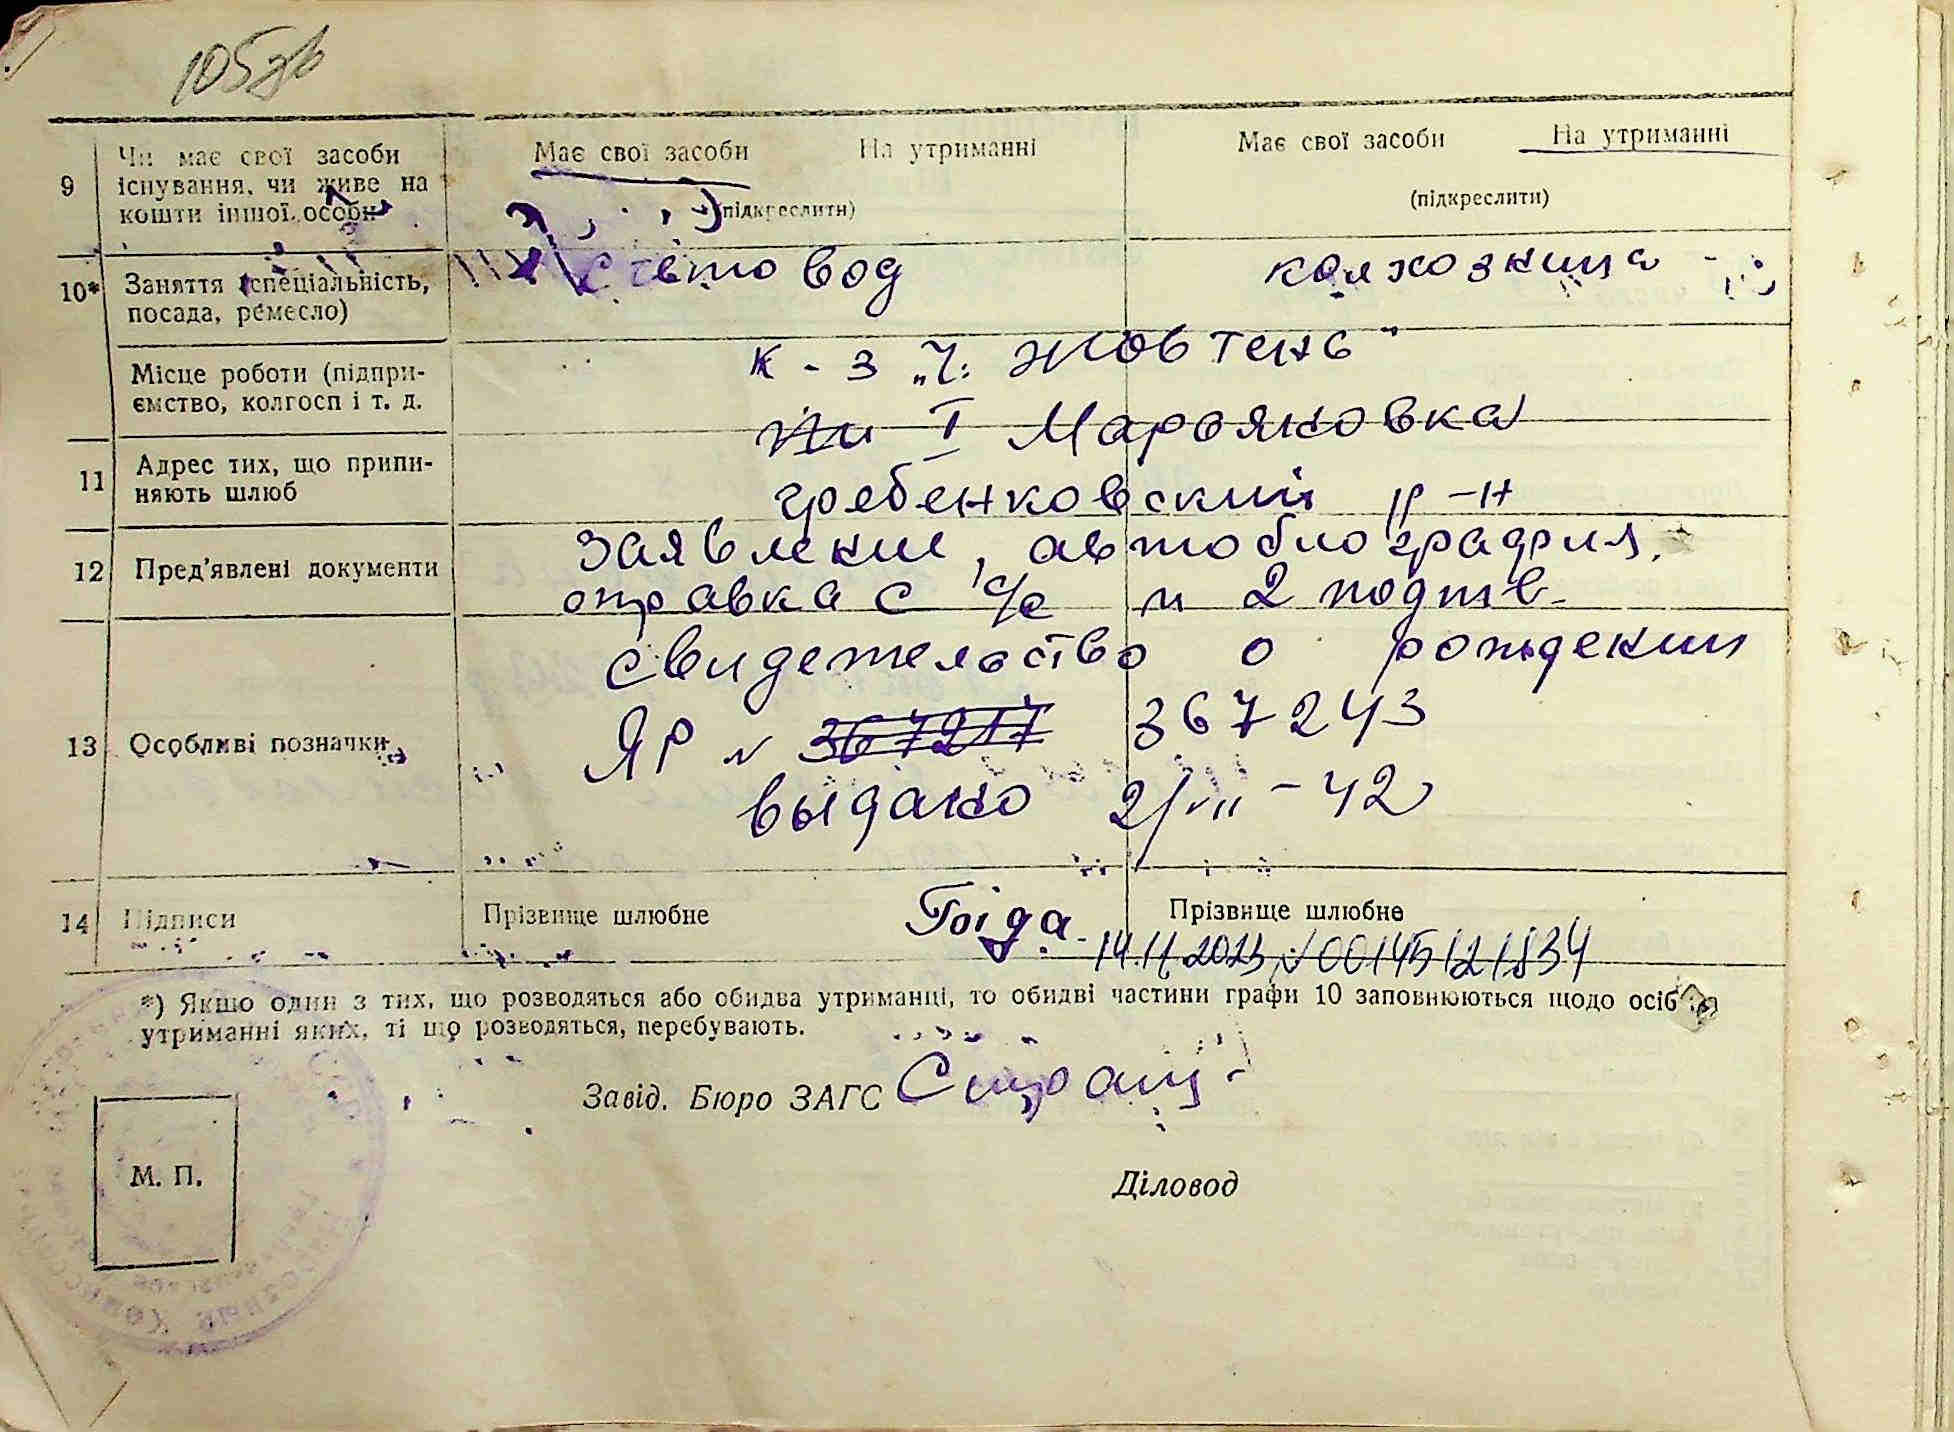 105 зв
9 Чи має свої засоби існування, чи живе на кошти іншої особи
Має свої засоби На утриманні
(підкреслити)
Має свої засоби На утриманні
(підкреслити)
10* Заняття (спеціальність, посада, ремесло)
Счетовод
колхозница
Місце роботи (підпри-
ємство, колгосп і т. д.
к-з „Ч. Жовтень"
11 Адрес тих, що припи-
няють шлюб
I Марьяновка
гребенковский р-н
12 Пред'явлені документи
заявление, автобиография,
справка с с/с и 2 подтв.
13 Особливі позначки
свидетельство о рождении
ЯР № 367217 367243
выдано 2/VII-42
14 Підписи
Прізвище шлюбне Гоіда
Прізвище шлюбне
14.11.2023, № 00145121834
*) Якщо один з тих, що розводяться або обидва утриманці, то обидві частини графи 10 заповнюються щодо осіб на
утриманні яких, ті що розводяться, перебувають.
Завід. Бюро ЗАГС
Діловод
М. П.